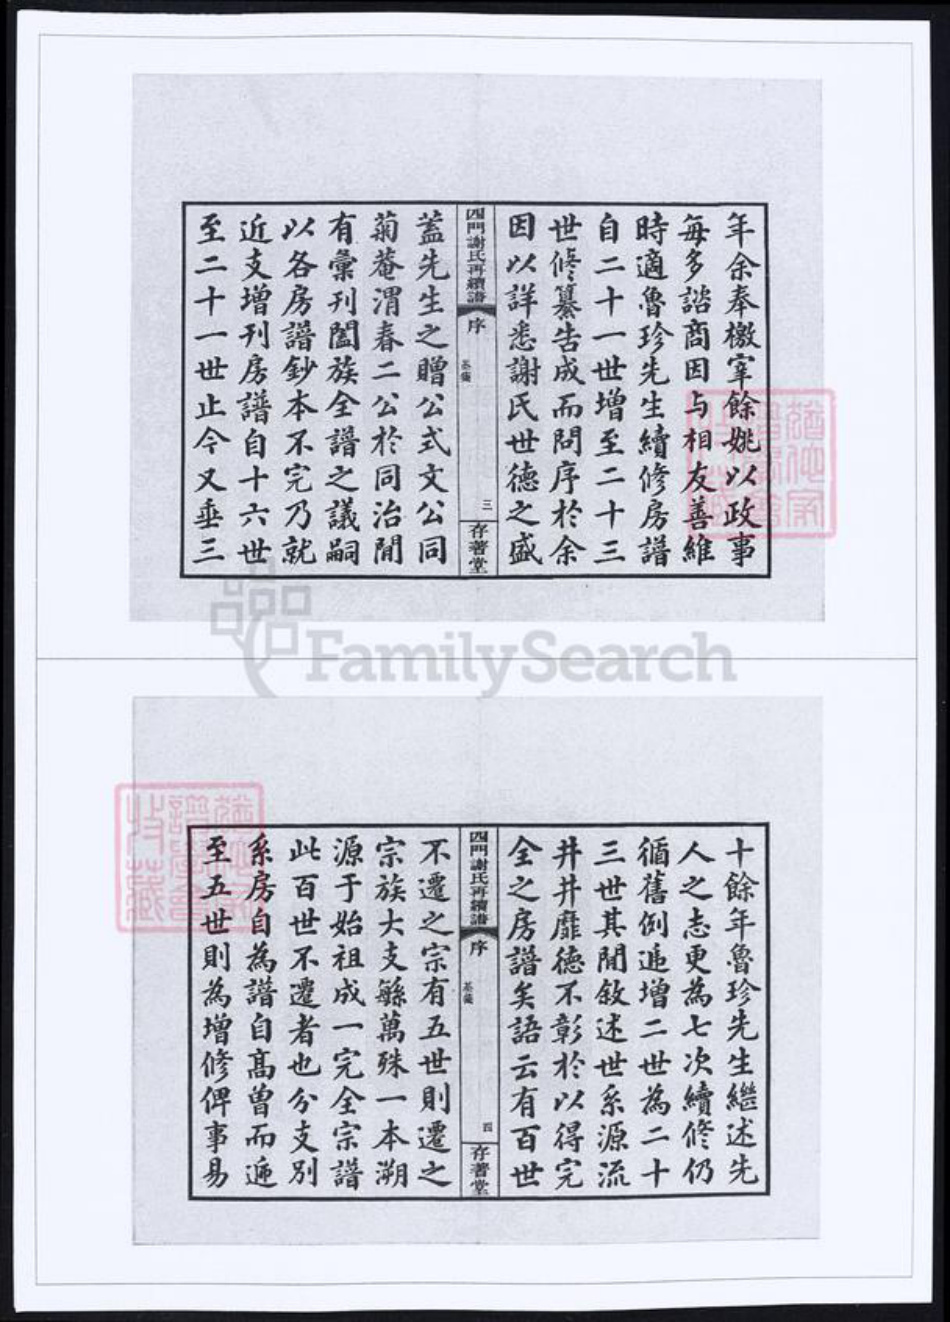 年余奉檄宰餘姚以政事
每多諮商因与相友善維
時適魯珍先生續修房譜
自二十一世增至二十三
世修纂告成而問序於余
因以詳悉謝氏世德之盛
四門謝氏再續譜
序
三
存著堂
蓋先生之贈公式文公同
菊菴渭春二公於同治間
有彙刊闔族全譜之議嗣
以各房譜鈔本不完乃就
近支增刊房譜自十六世
至二十一世止今又垂三
FamilySearch
十餘年魯珍先生繼述先
人之志更為七次續修仍
循舊例遞增二世為二十
三世其間敘述世系源流
井井靡德不彰於以得完
全之房譜矣語云有百世
四門謝氏再續譜
序
四
存著堂
不遷之宗有五世則遷之
宗族大支繇萬殊一本溯
源于始祖成一完全宗譜
此百世不遷者也分支別
系房自為譜自高曾而遞
至五世則為增修俾事易